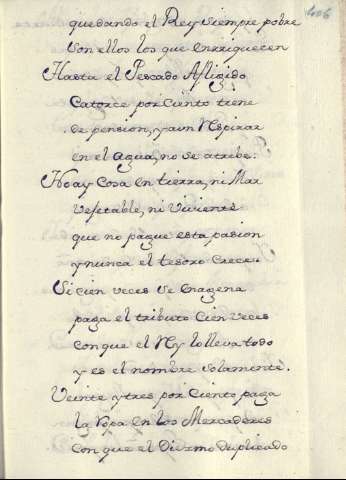 406
quedando el Rey siempre pobre
son ellos los que enrriquecen
Hasta el Pescado Afligido
Catorce por Ciento tiene
de pension, y aun Respirar
en el agua, no se atribe.
No ay Cosa en tierra, ni Mar
vejetable, ni viviente
que no pague esta pasion
y nunca el tesoro Crece.
Si cien veces se enagena
paga el tributo Cien veces
con que el Rey lo lleva todo
y es el nombre solamente.
Veinte y tres por Ciento paga
la Ropa en los Mercaderes
con que el Diezmo duplicado